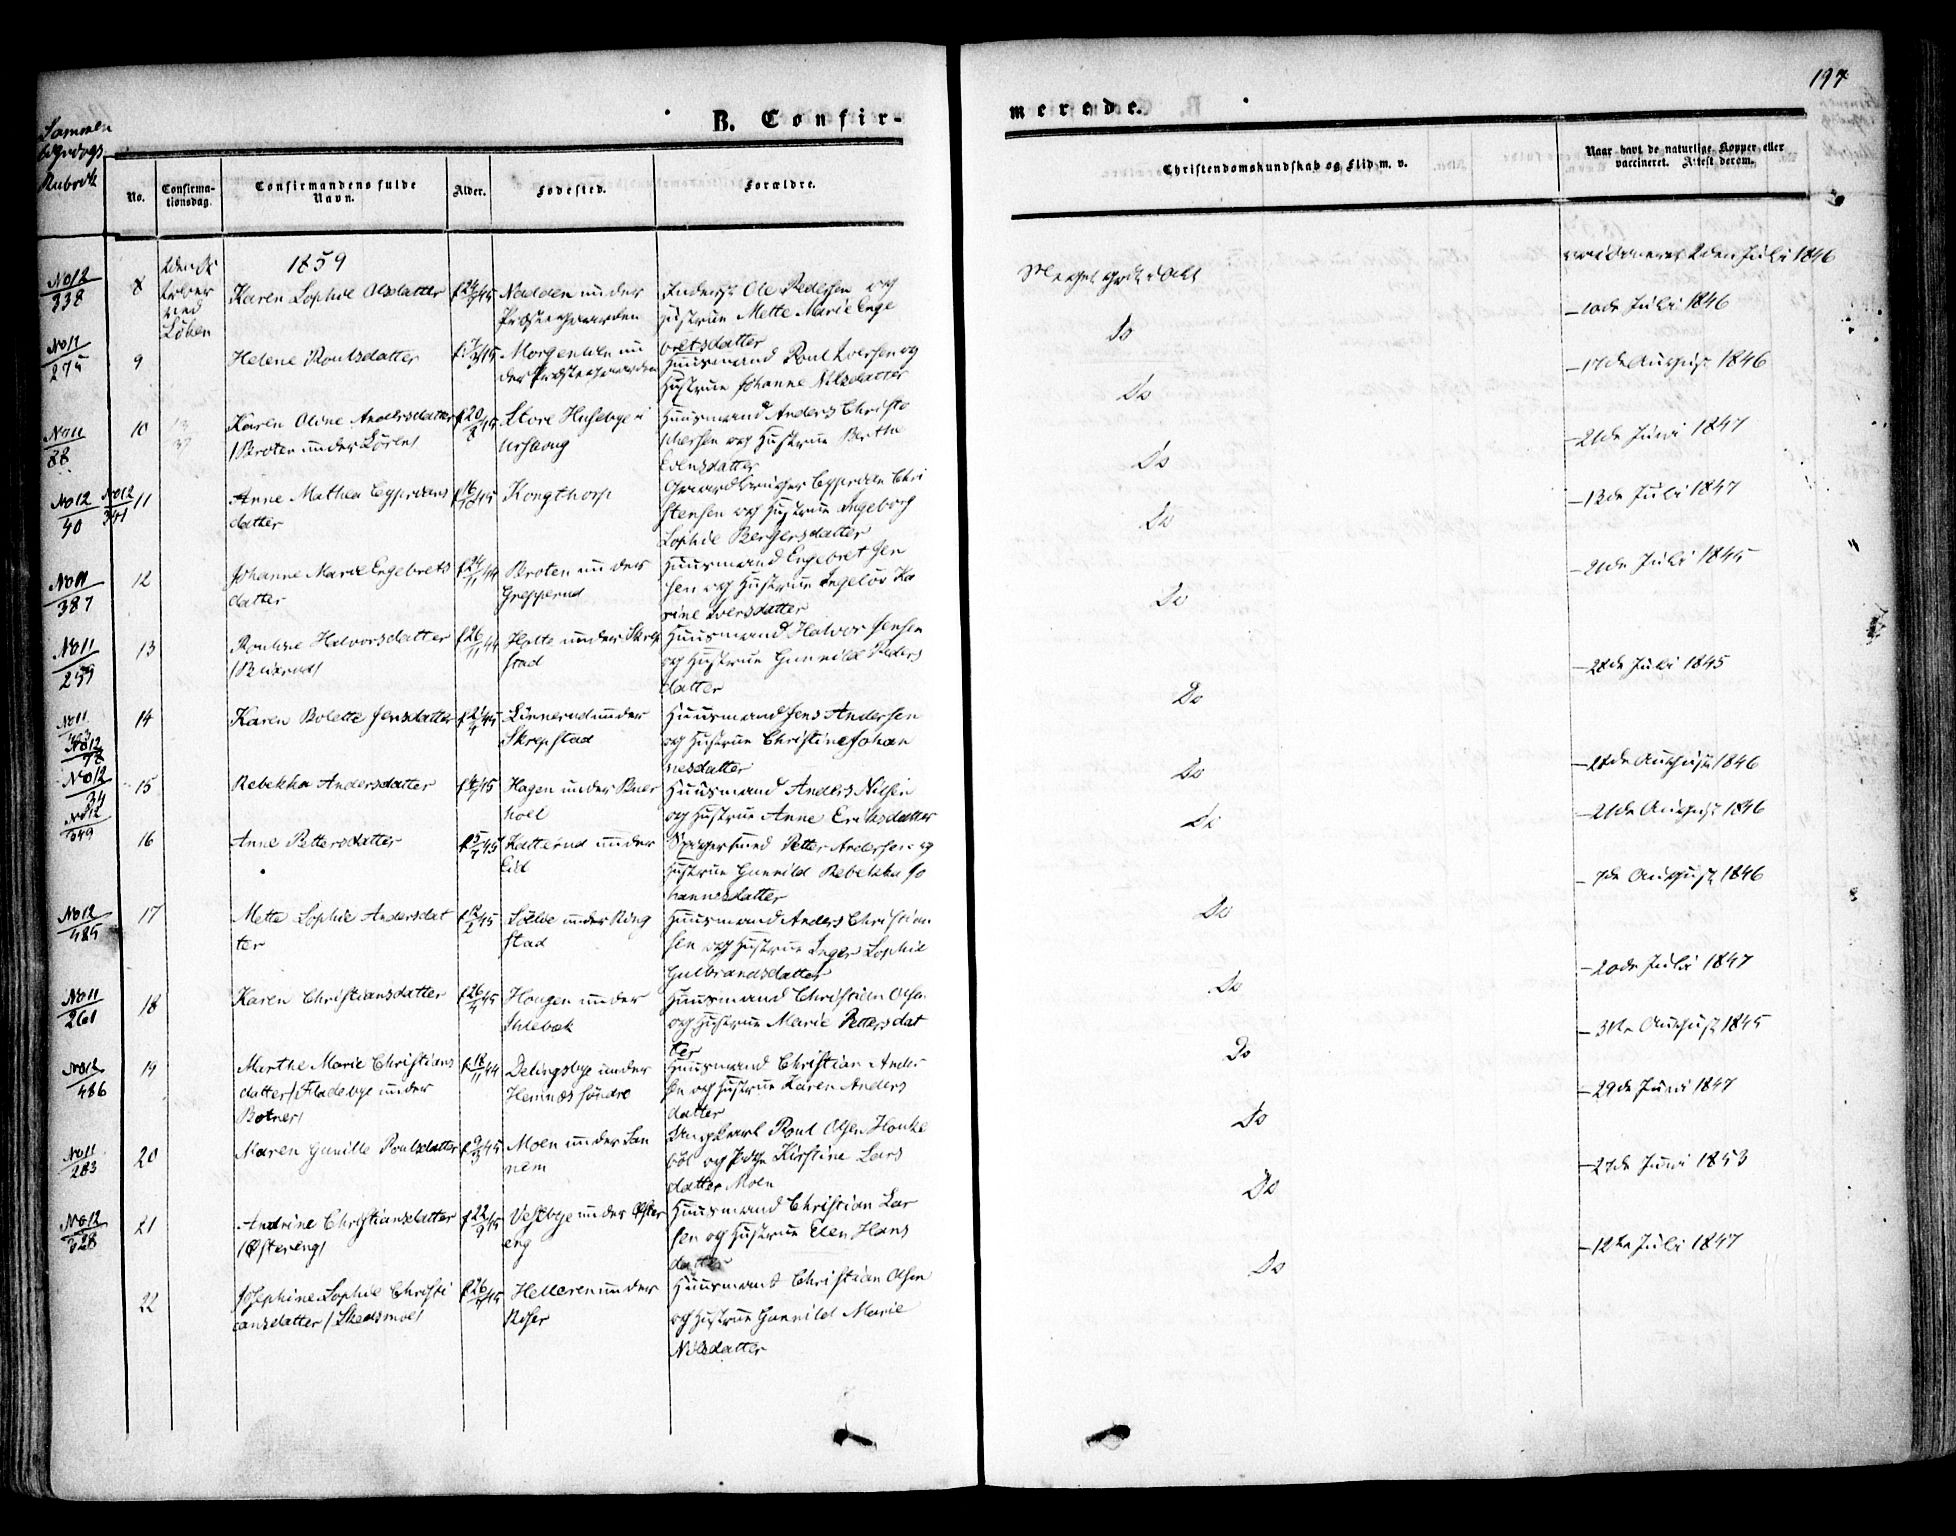 197
B. Confir-
merede.
Sammen
Rubrik
No.
Confirma-
tionsdag.
Confirmandens fulde
Navn.
Alder.
Fødested.
Forældre.
Christendomskundskab og Flid m. v.
Naar havt de naturlige Kopper eller
vaccineret. Attest derom.
1859
No 12
338
8
Karen Sophie Olsdatter
Nadden under
Præstegaarden
Inderst Ole Pedersen og
Hustrue Mette Marie Enge
bretsdatter
Meget godt
vaccineret 2den Juli 1846
Løken
No 11
275
9
Helene Poulsdatter
Morgenlien un
der Præstegaarden
Huusmand Poul Iversen og
Hustrue Johanne Nilsdatter
Do
– 10de Juli 1846
No 11
88
10
Karen Oline Andersdatter
/Broten under Løren/
Store Husebye i
Urskoug
Huusmand Anders Christo
phersen og Hustrue Berthe
Evensdatter
Do
– 17de August 1846
No 12
40
No 12
341
11
Anne Mathea Cyprians
datter
16/10 45
Kongthorp
Gaardbruger Cyprian Chri
stensen og Hustrue Ingeborg
Sophie Bergersdatter
Do
– 21de Juni 1847
No 11
387
12
Johanne Marie Engebrets
datter
Broten under
Grepperud
Huusmand Engebret Jen
sen og Hustrue Ingeborg Ka
rine Iversdatter
Do
– 13de Juli 1847
No 11
259
13
Pouline Halvorsdatter
26/11 44
Hytte under Skrep
stad
Huusmand Halvor Jensen
og Hustrue Gunnild Peders
datter
Do
– 21de Juli 1845
No 11
No 12
78
14
Karen Bolette Jensdatter
Linnerud under
Skrepstad
Huusmand Jens Andersen
og Hustrue Christine Johan
nesdatter
Do
– 28de Juli 1845
No 12
34
15
Rebekka Andersdatter
Hagen under Buer
hoel
Huusmand Anders Nilsen
og Hustrue Anne Eriksdatter
Do
– 28de August 1846
No 12
349
16
Anne Pettersdatter
Katterud under
Eid
Spigersmed Petter Andersen og
Hustrue Gunnild Rebekka Jo
hannesdatter
Do
– 21de August 1846
No 12
485
17
Mette Sophie Andersdat
ter
under Ring
stad
Huusmand Anders Christian
sen og Hustrue Inger Sophie
Gulbrandsdatter
Do
– 7de August 1846
No 11
261
18
Karen Christiansdatter
Hougen under
Slebæk
Huusmand Christian Olsen
og Hustrue Marie Pettersdat
ter
Do
– 20de Juli 1847
No 12
486
19
Marthe Marie Christians
datter /Fladebye under
Botner/
18/11 44
Delingsbye under
Hemnæs søndre
Huusmand Christian Ander
sen og Hustrue Karen Anders
datter
Do
– 31te August 1845
No 11
283
20
Maren Gunille Poulsdatter
Moen under Kan
nem
Ungkarl Poul Olsen Honke
böl og Pige Kirstine Lars
datter Moen
Do
– 29de Juni 1847
No 12
328
21
Andrine Christiansdatter
/Østereng/
Vestbye under Øster
eng
Huusmand Christian Lar
sen og Hustrue Elen Hans
datter
Do
– 27de Juni 1853
22
Josephine Sophie Christi
ansdatter /Skedsmoe/
Helleren under
Riser
Huusmand Christian Olsen
og Hustrue Gunnild Marie
Nilsdatter
Do
– 12te Juli 1847